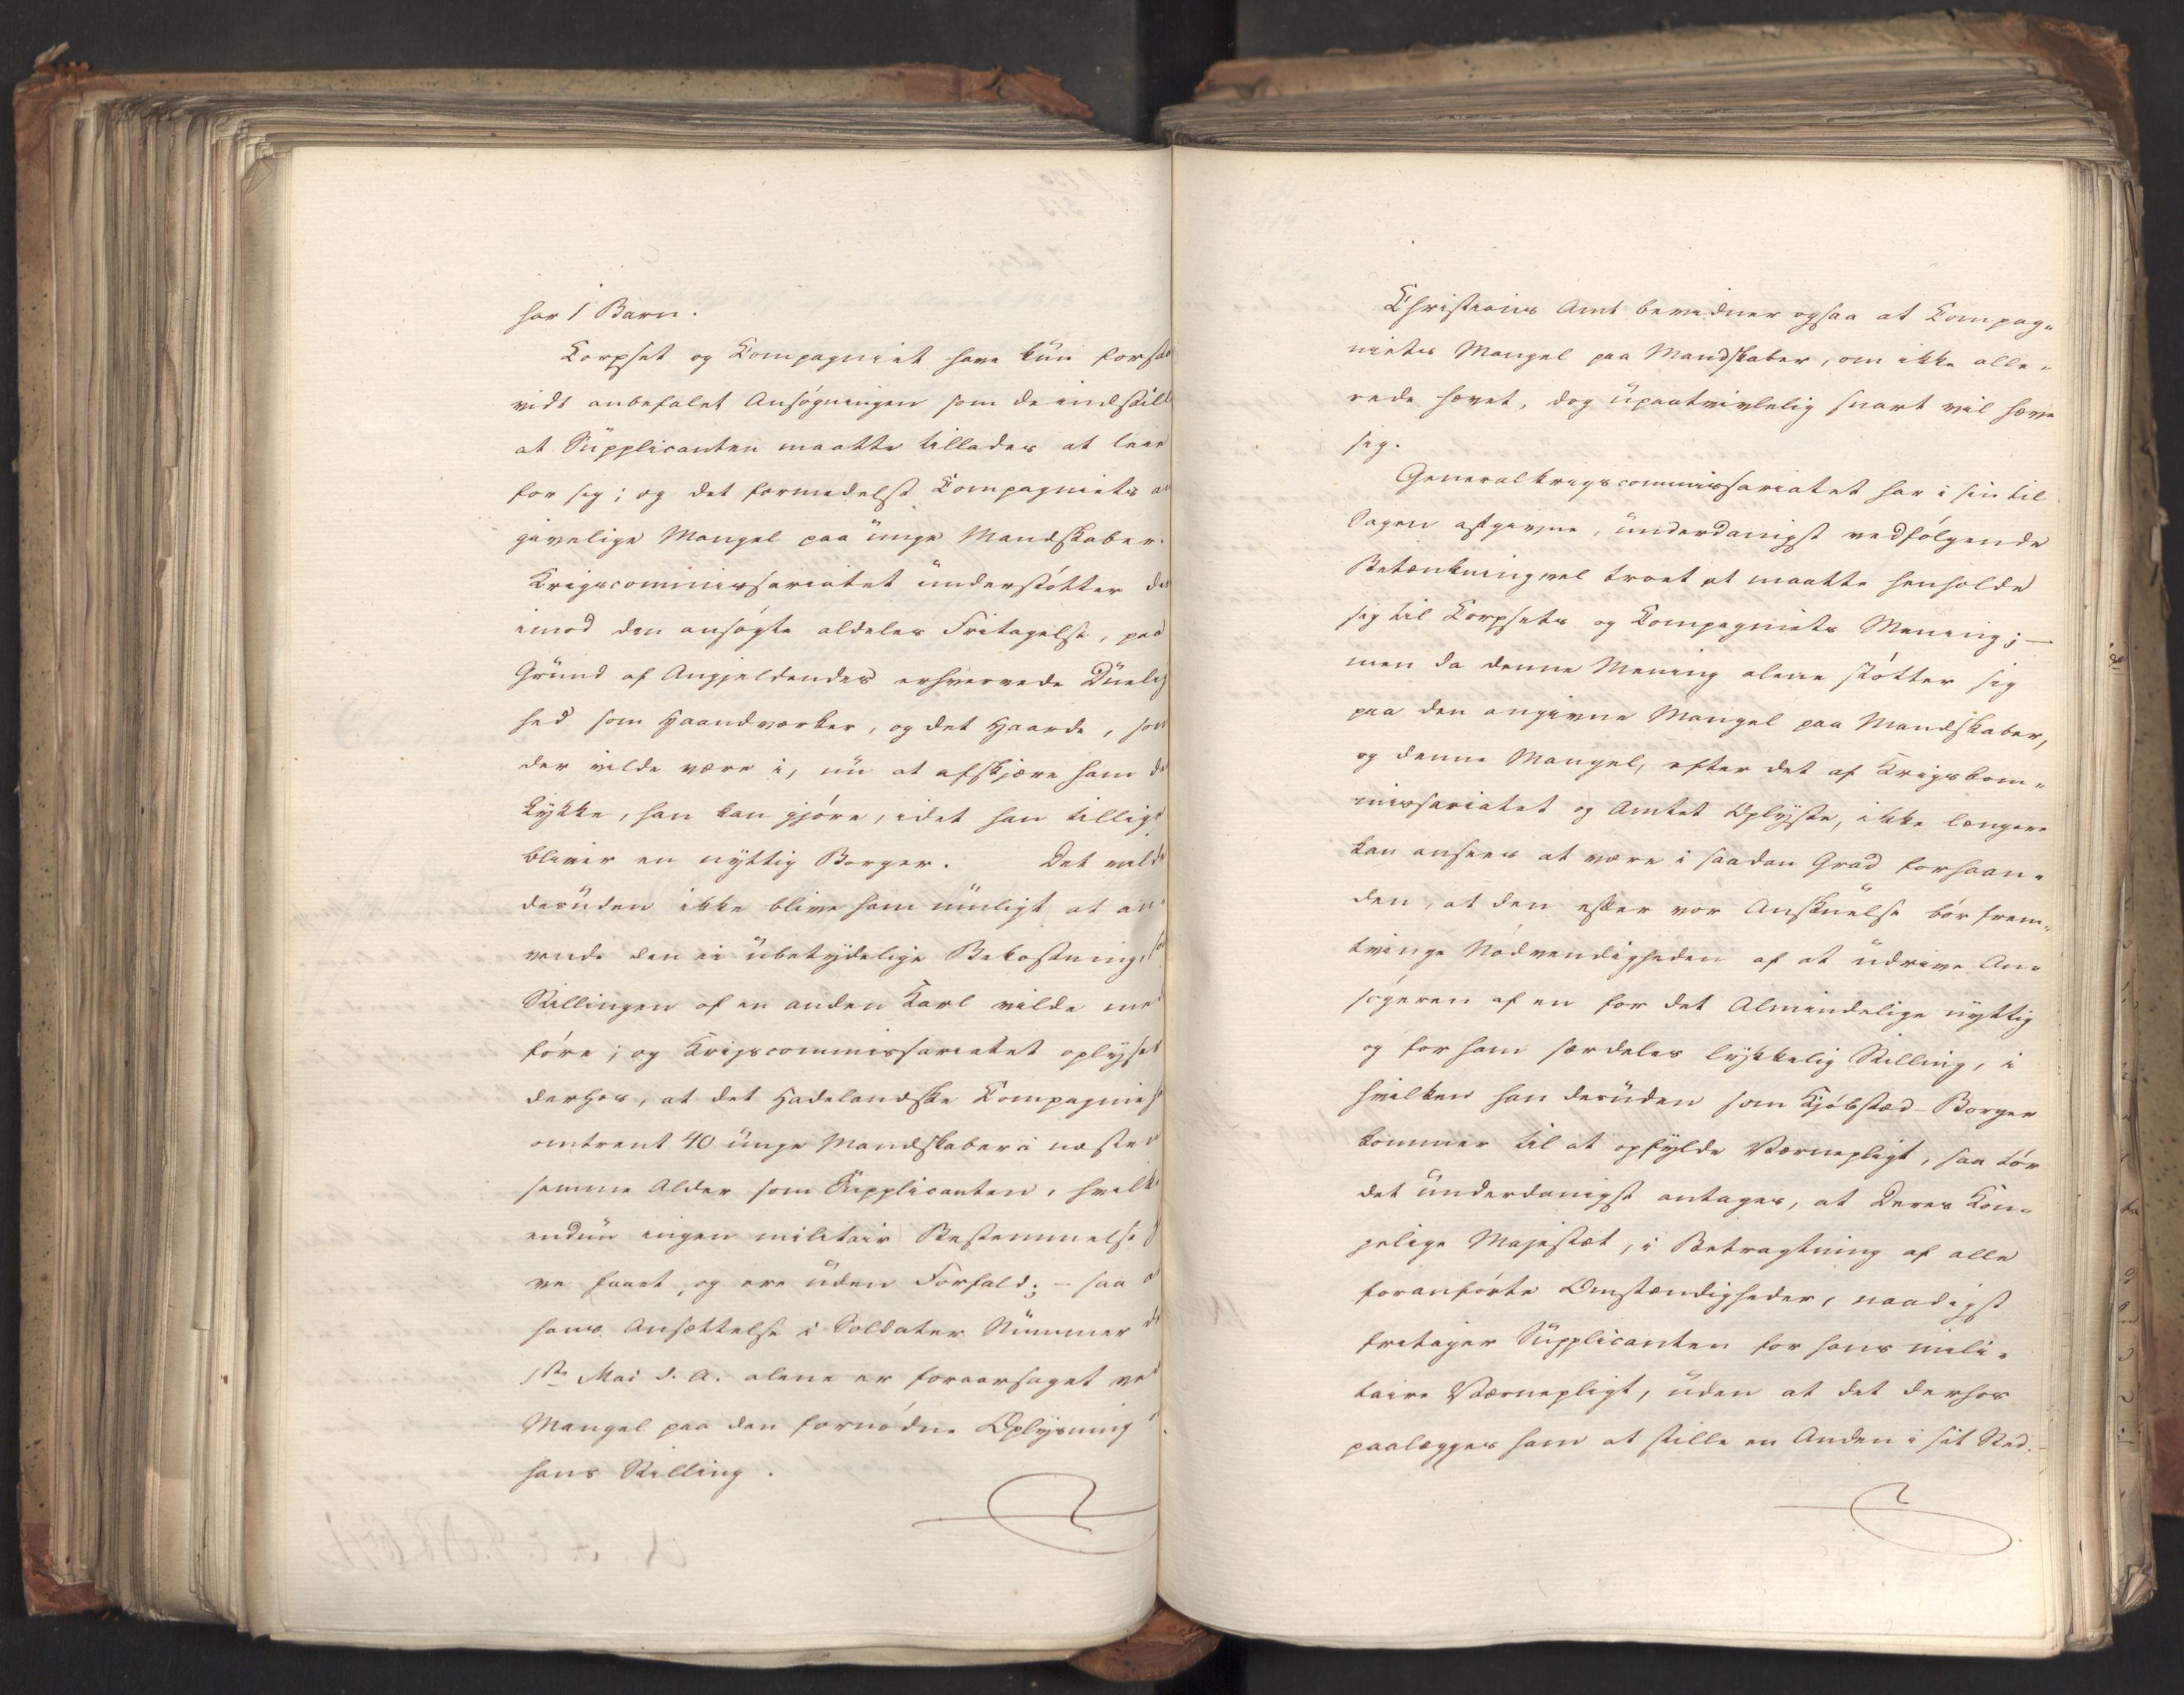 har 1 Barn.
Corpset og Compagniet have kun forsaa
vidt anbefalet Ansøgningen som de indstill
at Supplicanten maatte tillades at leie
for sig; og det formedelst Compagniets an
givelige Mangel paa unge Mandskaber.
Krigscommissariatet understøtter der
imod den ansøgte aldeles Fritagelse, paa
Grund af Angjeldendes erhvervede Duelig
hed som Haandværker, og det Haarde, som
der vilde være i, nu at afskjære ham de
Lykke, han kan gjøre, idet han tillige
bliver en nyttig Borger. Det vilde
desuden ikke blive ham muligt at an
vende den ei ubetydelige Bekostning, so
Stillingen af en anden Karl vilde med
føre; og Krigscommissariatet oplyser
derhos, at det Hadelandske Compagnie h
omtrent 40 unge Mandskaber i næsten
samme Alder som Supplicanten, hvilke
endnu ingen militair Bestemmelse h
ve faaet, og ere uden Forfald; – saa at
hans Ansættelse i Soldater Nummer de
1ste Mai d. A. alene er foraarsaget ved
Mangel paa den fornødne Oplysning
hans Stilling.
Christians Amt bevidner ogsaa at Compag„
niets Mangel paa Mandskaber, om ikke alle„
rede hævet, dog upaatvivlelig snart vil hæve
sig.
Generalkrigscommissariatet har i sin til
Sagen afgivne, underdanigst vedfølgende
Betænkning vel troet at maatte henholde
sig til Corpsets og Compagniets Mening; —
men da denne Mening alene støtter sig
paa den angivne Mangel paa Mandskaber,
og denne Mangel, efter det af Krigskom„
missariatet og Amtet Oplyste, ikke længere
kan ansees at være i saadan Grad forhaan„
den, at den efter vor Anskuelse bør frem„
tvinge Nødvendigheden af at udrive An„
søgeren af en for det Almindelige nyttig
og for ham særdeles lykkelig Stilling, i
hvilken han desuden som Kjøbstad-Borger
kommer til at opfylde Værnepligt, saa tør
det underdanigst antages, at Deres Kon„
gelige Majestæt, i Betragtning af alle
foranførte Omstændigheder, naadigst
fritager Supplicanten for hans mili„
taire Værnepligt, uden at det derhos
paalægges ham at stille en Anden i sit Sted.